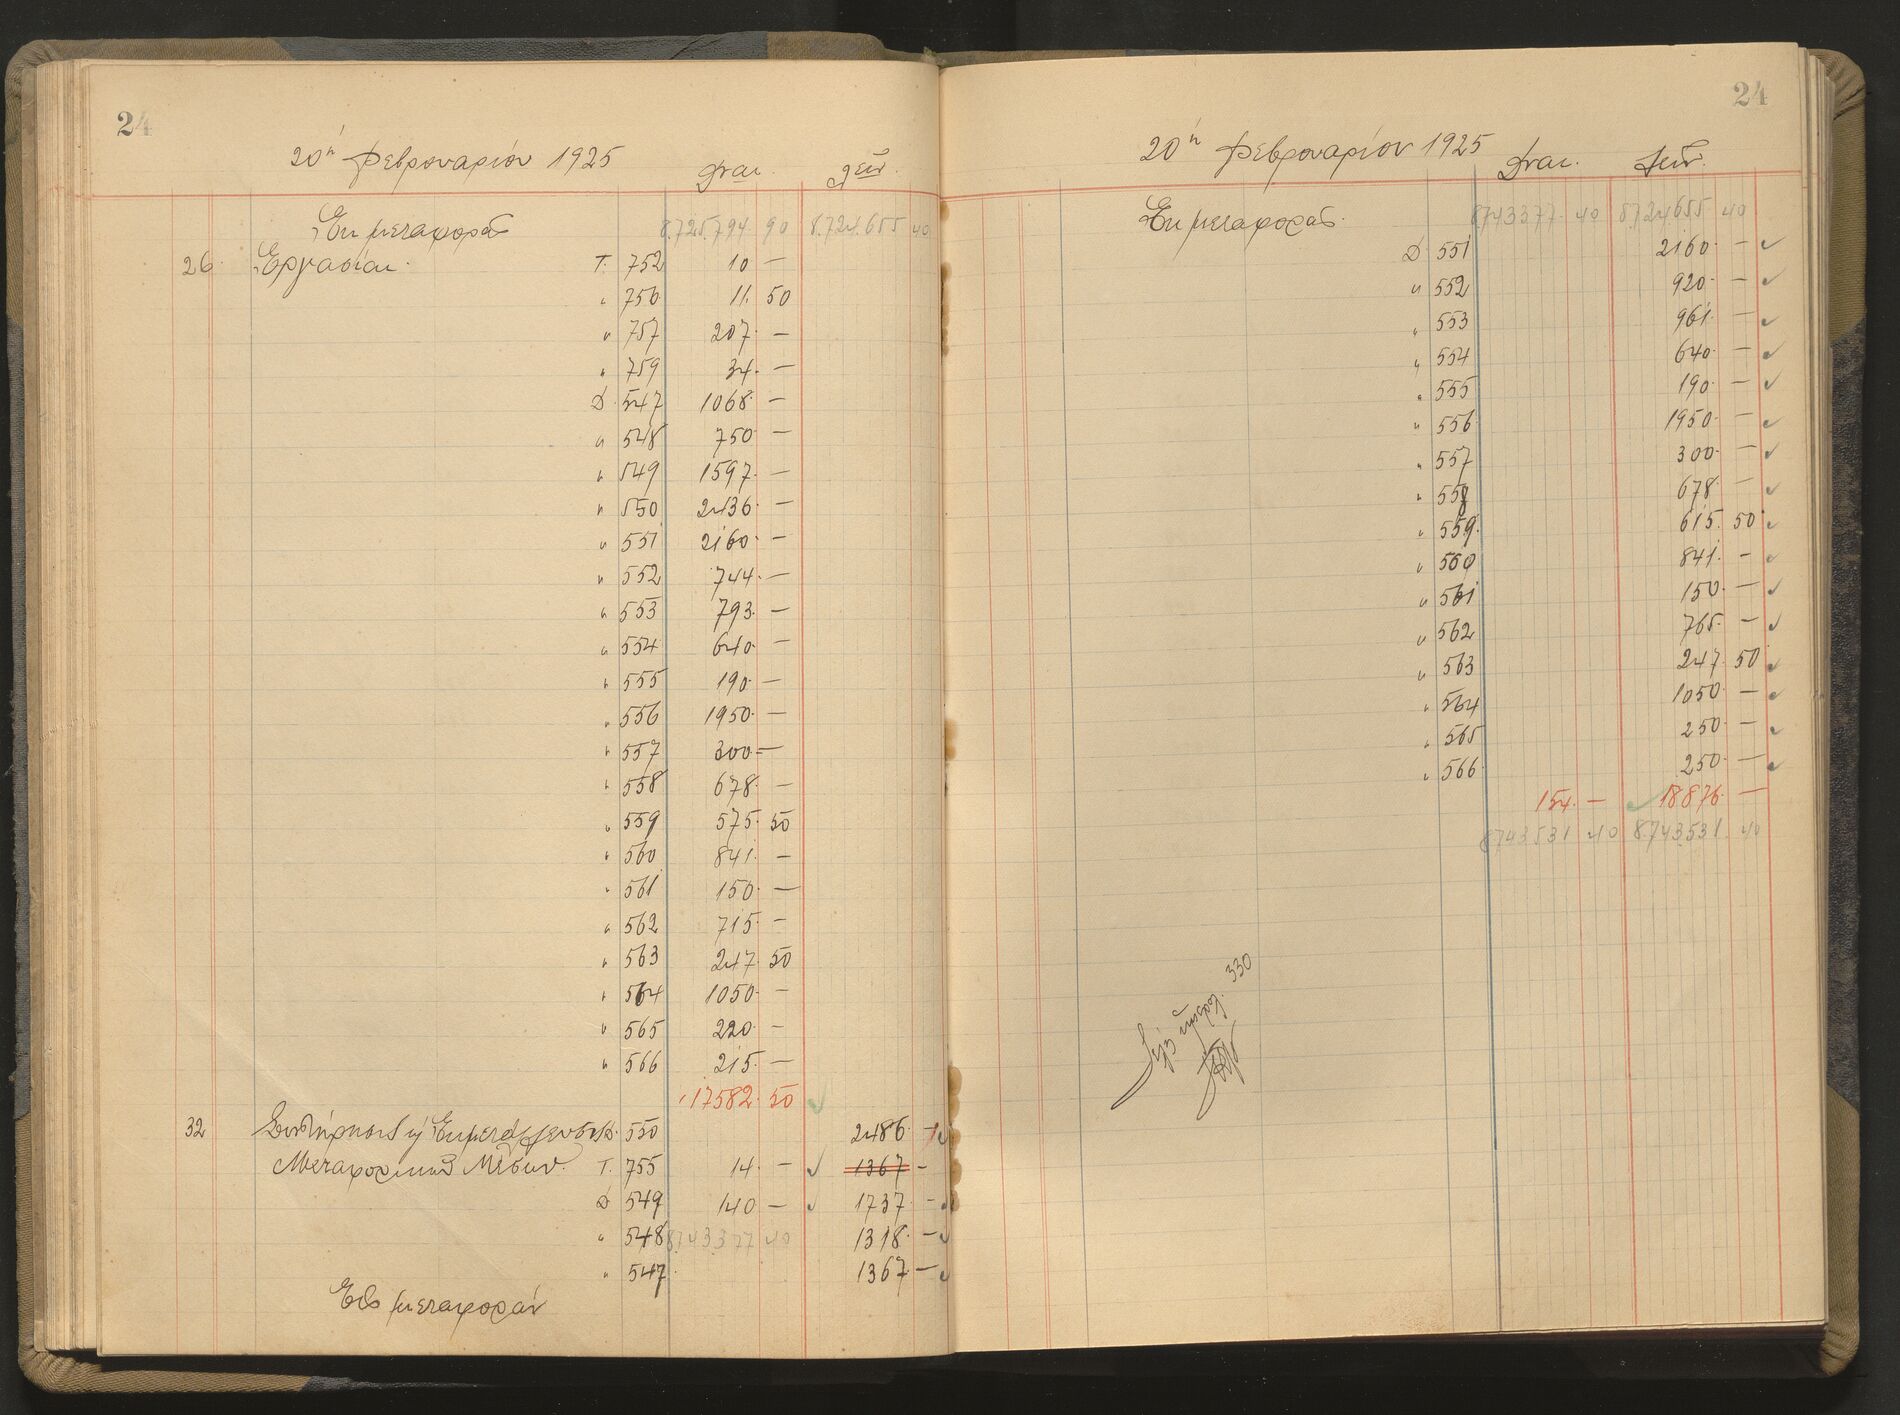 24
20ή Φεβρουαρίου 1925
Εκ μεταφοράς 8.725.794 90 8.724.655 40
26 Εργασίαι. T. 752 10 —
" 756 11. 50
" 757 207. —
" 759 34. —
D 547 1068. —
" 548 750 —
" 549 1597. —
" 550 2436. —
" 551 2160. —
" 552 744. —
" 553 793. —
" 554 640. —
" 555 190. —
" 556 1950. —
" 557 300 =
" 558 678. —
" 559 575. 50
" 560 841. —
" 561 150. —
" 562 715. —
" 563 247 50
" 564 1050. —
" 565 220. —
" 566 215. —
17582. 50
32 Συντήρησις ή Εκμετάλλευσις D. 550 2486 —
Μεταφορικών Μέσων. T. 755 14. — 1367 —
D 549 140 — 1737. —
" 548 8743377 40 1318. —
" 547 1367. —
Εις μεταφοράν
24
20ή Φεβρουαρίου 1925
Εκ μεταφοράς. 8743377. 40 8724655 40
D 551 2160. —
" 552 920. —
" 553 961. —
" 554 640. —
" 555 190. —
" 556 1950. —
" 557 300. —
" 558 678. —
" 559. 615. 50
" 560 841. —
" 561 150. —
" 562 765. —
" 563 247. 50
" 564 1050. —
" 565 250. —
" 566. 250. —
154. — 18876. —
8743531 40 8.743.531. 40
330